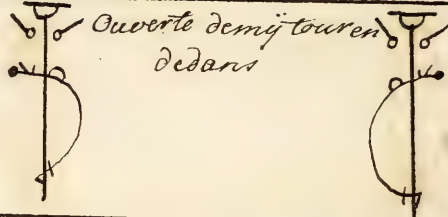 Ouverte demÿ tour en
dedans